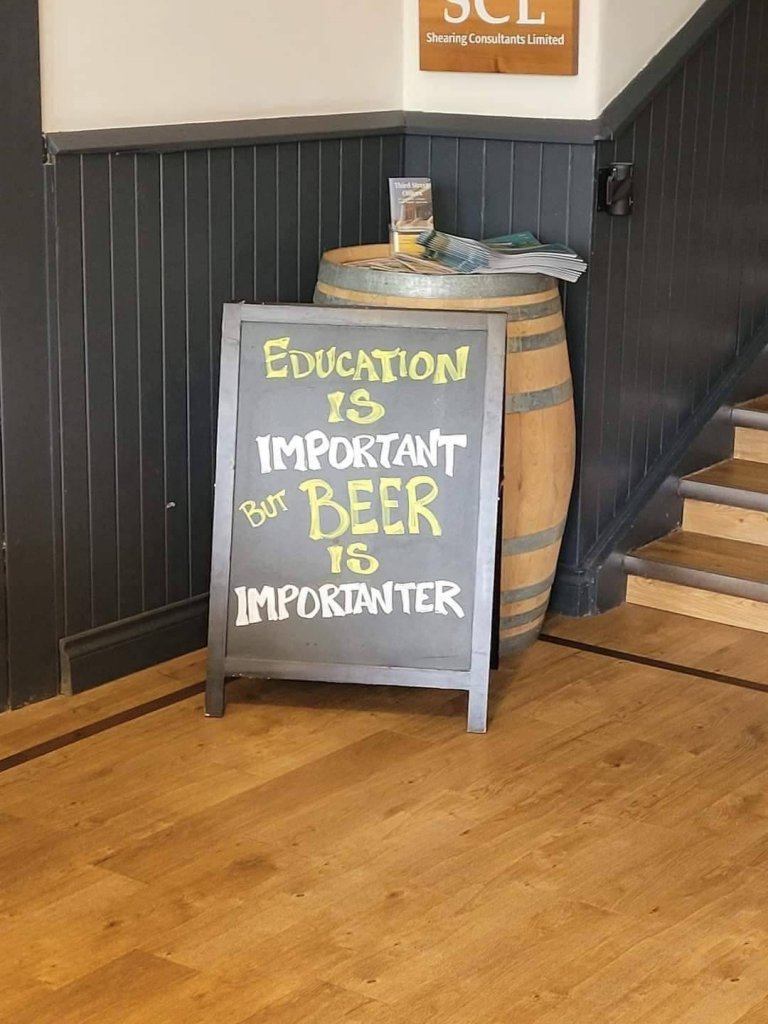 SCL
Shearing Consultants Limited
EDUCATION
IS
IMPORTANT
BUT BEER
IS
IMPORTANTER